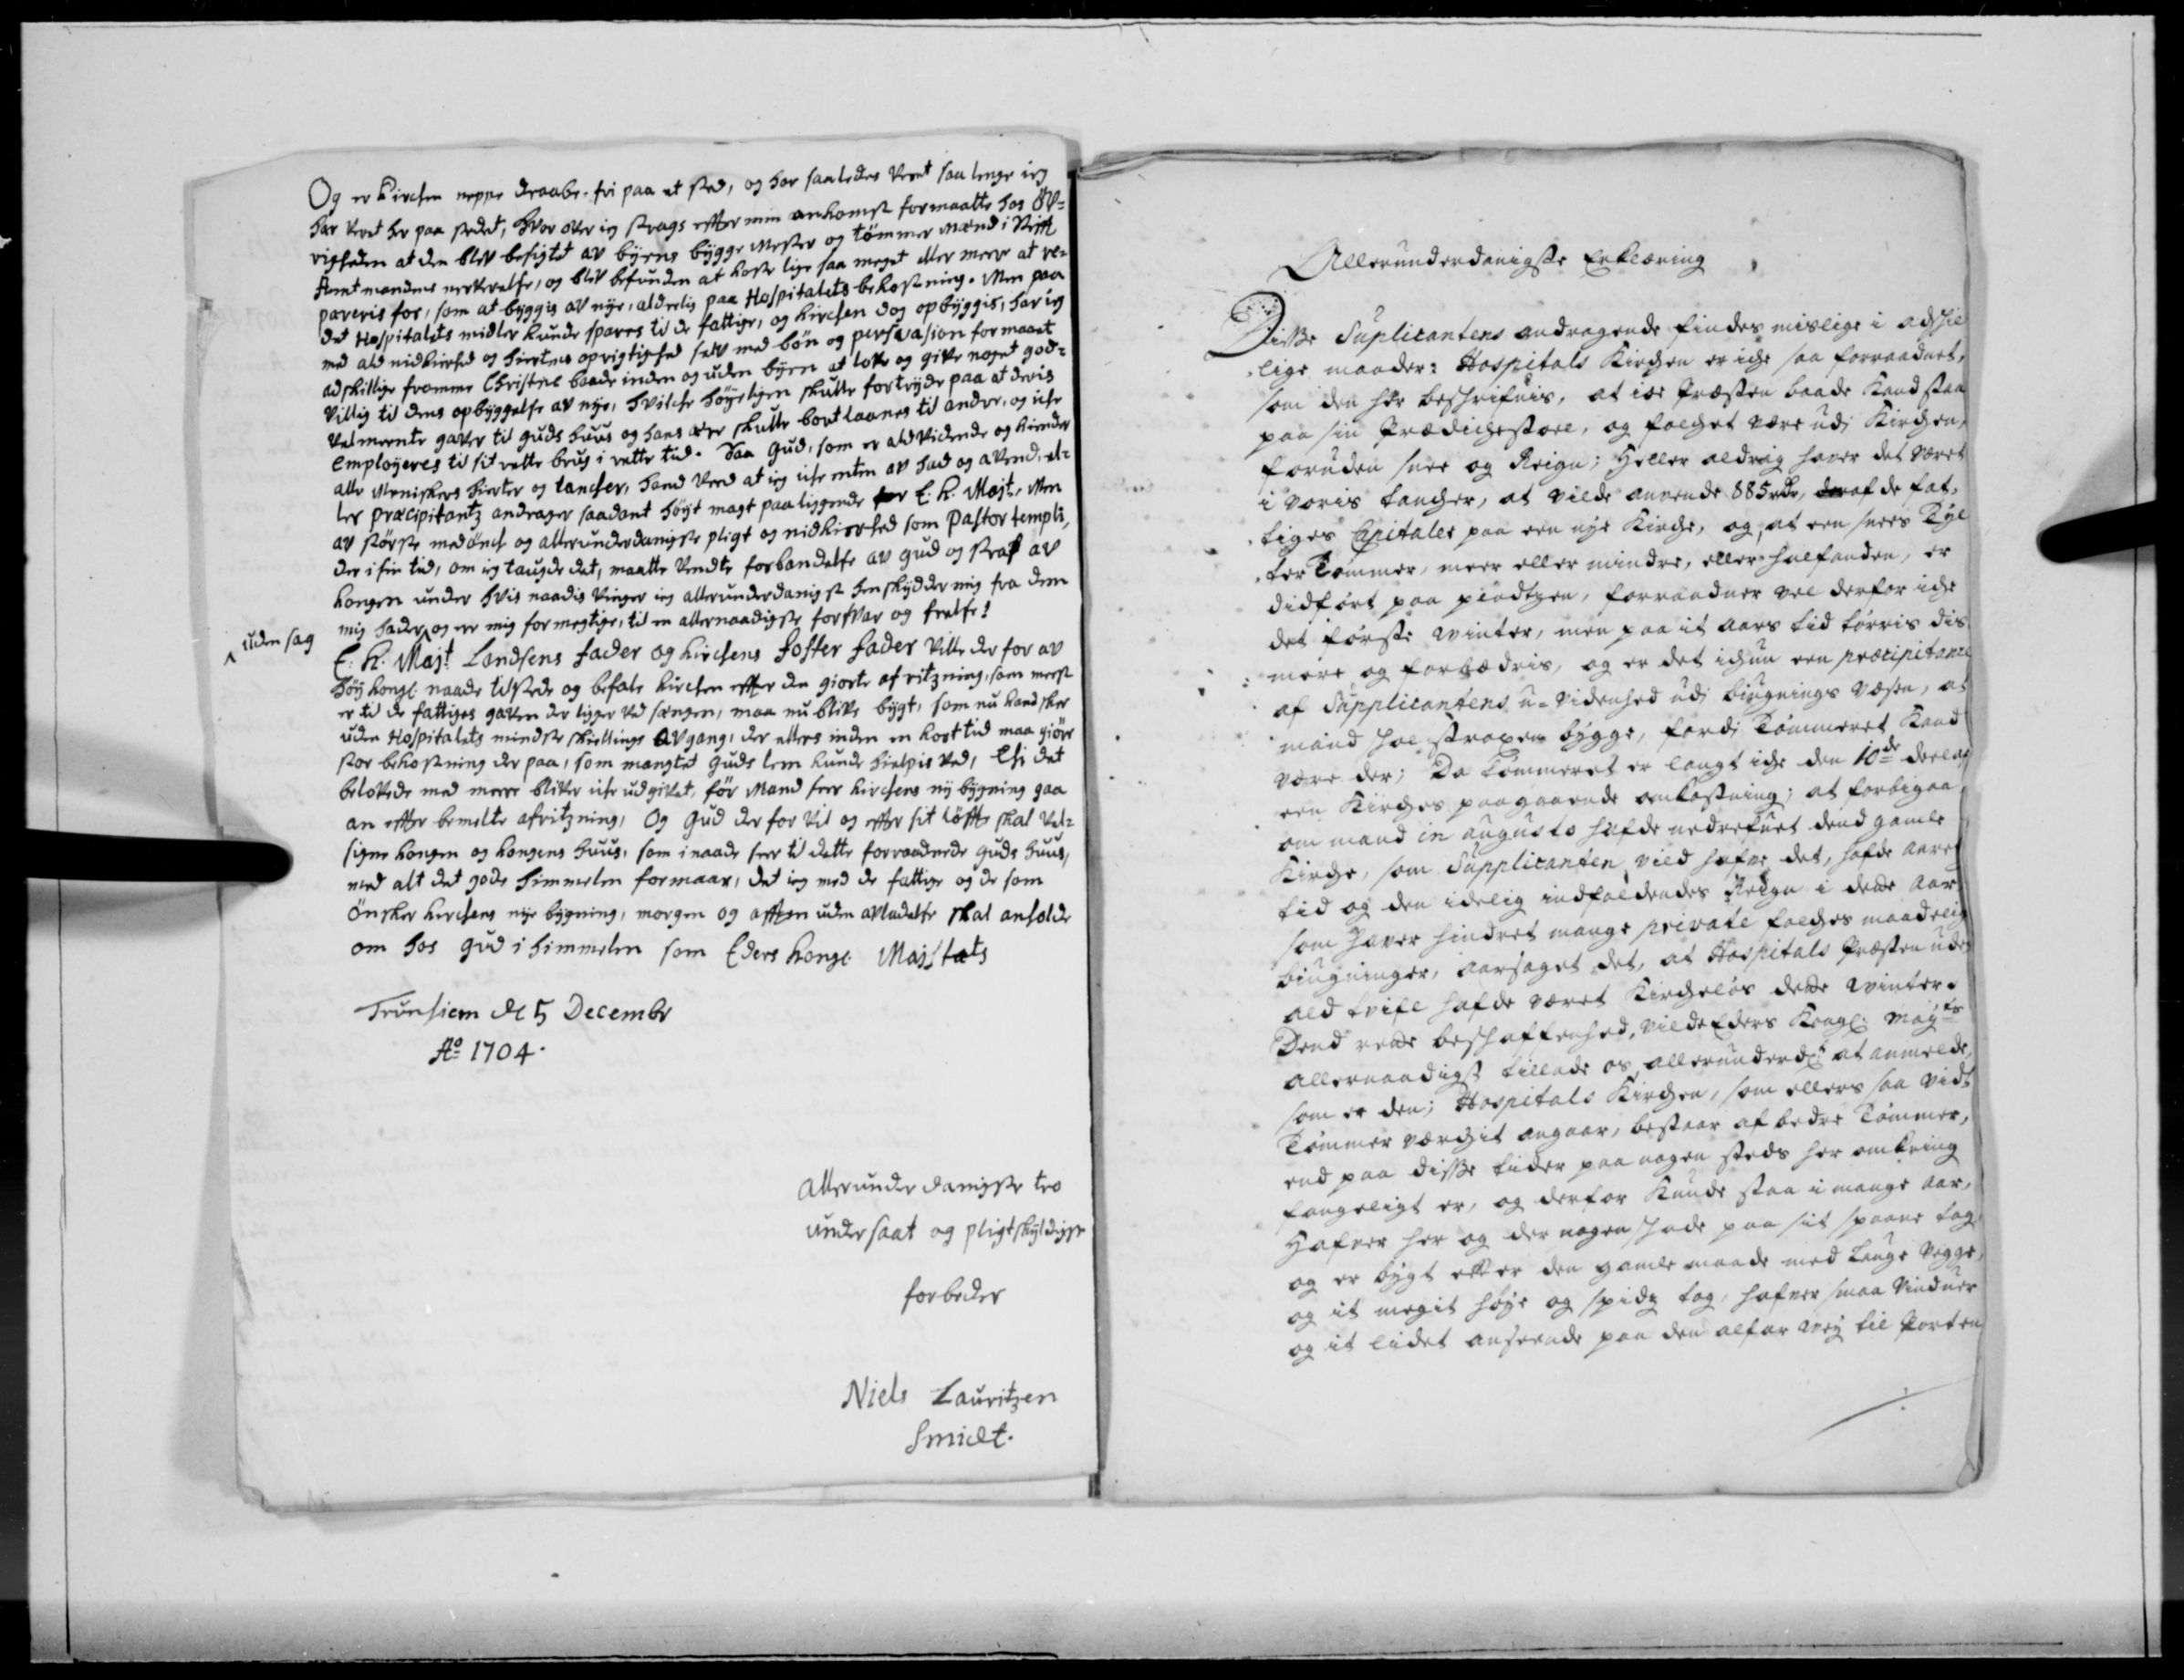 Og er Kirchen neppe draabe-fri paa et sted, og har saaledes veret saa lenge ieg
har veret her paa stedet, hvor over ieg strags efter min ankomst formaatte hos Øv-
righeden at den blev besigtet av byens bygge Mester og tömmer Mænd i Stift
Amtmandens nerverelse, og blev befunden at koste lige saa meget eller meere at re-
pareris for, som at byggis av nye, alderlis paa Hospitalets bekostning. Men paa
det Hospitalets midler kunde spares til de fattige, og kirchen dog opbyggis, har ieg
med ald nidkierhed og hiertens oprigtighed selv med bön og persuasion formaaet
adskillige fromme Christne baade inden og uden byen at love og give noget god-
villig til dens opbyggelse av nye, hvilche höyeligen skulle fortryde paa at deris
velmeente gaver til Guds huus og hans ære skulle bort laanes til andre, og iche
employeres til sit rette brug i rette tid. Saa Gud, som er aldvidende og kiender
alle Meniskers hierter og tancher, hand veed at ieg iche enten av had og avend, el-
ler præcipitantz andrager saadant höyt magt paaliggende for E. K. Mayt, Men
av störste medönch og allerunderdanigste pligt og nidkierhed som Pastor templi,
der i sin tid, om ieg taugde det, maatte vendte forbandelse av Gud og straf av
kongen under hvis naadis vinger ieg allerunderdanigst henskydder mig fra dem
mig hader, og ere mig formegtige, til en allernaadigste forsvar og frelse!
^ uden sag
E: K. Majt Landsens fader og kirchens foster fader ville der for av
höy kongl: naade tilstede og befale kirchen efter den giorte afritzning, som meest
er til de fattiges gavn der ligger ved sængen, maa nu blive bygt, som nu kand skee
uden Hospitalets mindste skillings avgang, der ellers inden en kort tid maa giöre
stor bekostning der paa, som mangtet Guds lem kunde hielpis ved, Thi det
belovede med meere bliver iche udgivet, för Mand seer kirchens ny bygning gaa
an efter bemelte afritzning, Og Gud der for vil og efter sit löfte skal vel-
signe kongen og kongens huus, som i naade seer til dette forraadnede Guds huus,
med alt det gode himmelen formaar, det ieg med de fattige og de som
önsker kirchens nye bygning, morgen og aften uden avladelse skal anholde
om hos Gud i himmelen som Eders kongl: Majstæts
Trunhiem de 5 Decembr
Aº 1704.
Allerunderdanigste tro
undersaat og pligtskyldigste
forbeder
Niels Lauritzen
Smidt.
Allerunderdanigste Erklæring
Disse Suplicantens andragende findes mislige i adskil-
lige maader: Hospitals Kirchen er iche saa forraadnet,
som den her beskrifuis, at ioe Præsten baade Kand staa
paa sin Prædichestoel, og folchet være udi Kirchen,
foruden snee og Reign; Heller aldrig hafver det været
i voris tancher, at vilde anvende 885 rdr, deraf de fat-
tiges Capitaler paa een nye Kirche, og at een snees Tyl-
ter Tömmer, meer eller mindre, eller halfanden, er
didfört paa pladtzen, forraadner vel derfor iche
det förste winter, men paa it aars tid törris dis
mere og forbædris, og er det ichun een præcipitance
af Supplicantens u-videnhed udi biugnings væsen, at
mand skal straxen bygge, fordi Tömmeret Kand
være der; Da Tömmeret er langt iche den 10de deel af
een Kirches paagaaende omkostning; at forbigaa,
om mand in augusto hafde nedrefuet dend gamle
Kirche, som Supplicanten vild hafve det, hafde aarets
tid og den idelig indfaldendes Reign i dette aar
som hafver hindret mange private folches maadelig
biugninger, aarsaget det, at Hospitals Præsten uden
ald tvifl hafde været Kircheløs dette winter.
Dend rette beskaffenhed, vilde Eders Kongl: Mayts
allernaadigst tillade os, allerunderdt at anmelde,
som er den; Hospitals Kirchen, som ellers saa vidt
Tömmerværchit angaar, bestaar af bedre Tömmer,
end paa disse tiider paa nogen steds her omkring
fangeligt er, og derfor Kunde staa i mange aar,
Hafver her og der nogen skade paa sit spaane tag,
og er bygt effter den gamle maade med lauge vegge,
og it megit höye og spidz tag, hafver smaa vinduer
og it lidet anseende paa den alfar vey til Porten